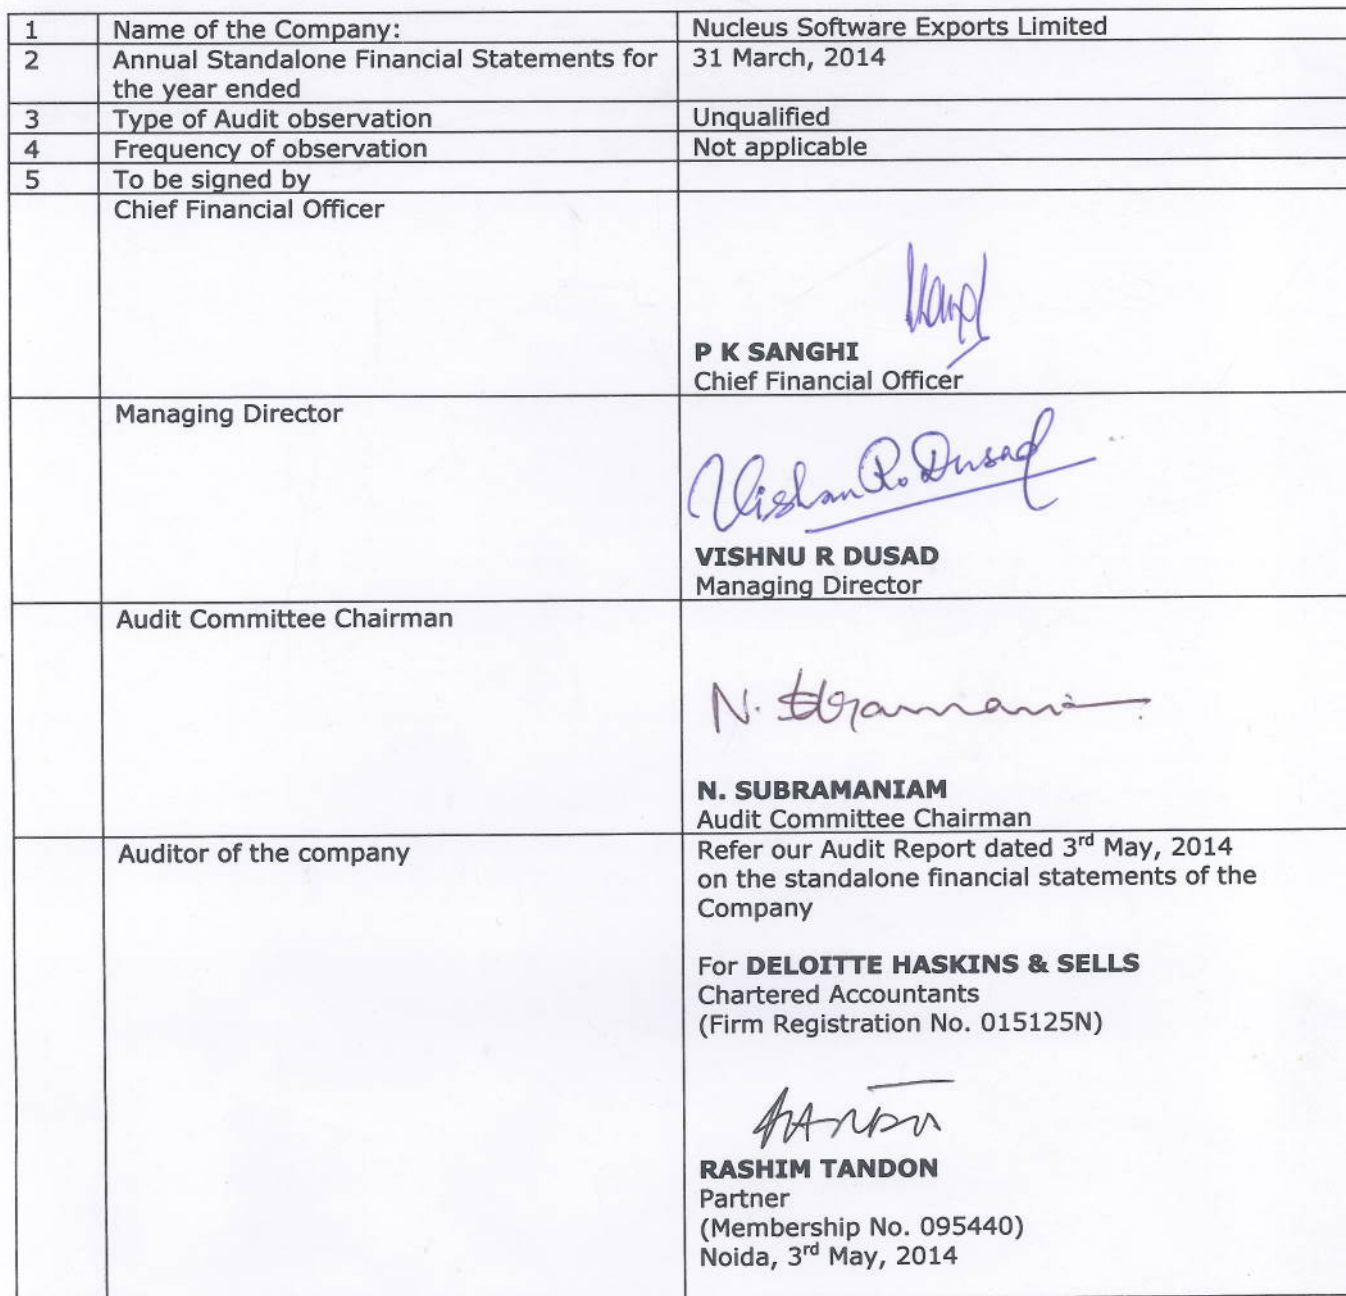 1 Name of the Company: Nucleus Software Exports Limited
2 Annual Standalone Financial Statements for 31 March, 2014
the year ended
3 Type of Audit observation Unqualified
4 Frequency of observation Not applicable
5 To be signed by
Chief Financial Officer
P K SANGHI
Chief Financial Officer
Managing Director
Vishnu R. Dusad
VISHNU R DUSAD
Managing Director
Audit Committee Chairman
N.
N. SUBRAMANIAM
Audit Committee Chairman
Auditor of the company Refer our Audit Report dated 3rd May, 2014
on the standalone financial statements of the
Company
For DELOITTE HASKINS & SELLS
Chartered Accountants
(Firm Registration No. 015125N)
RASHIM TANDON
Partner
(Membership No. 095440)
Noida, 3rd May, 2014